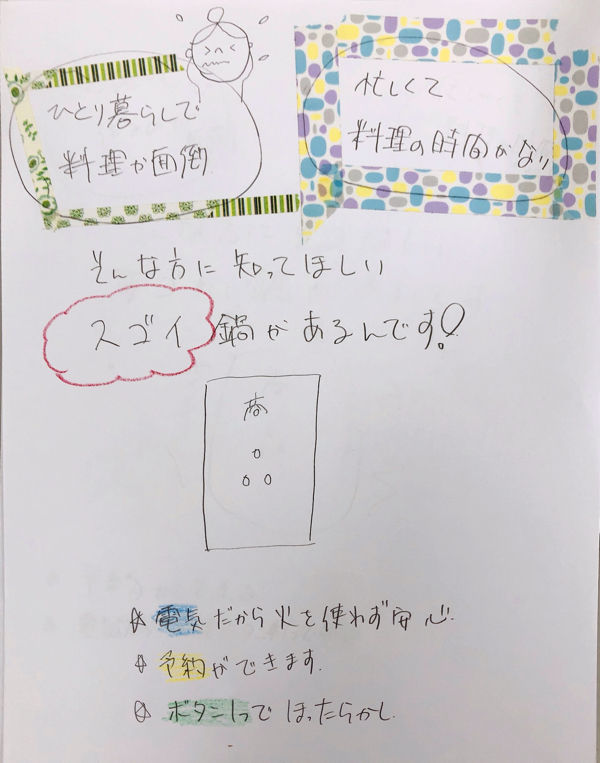 ひとり暮らしで
料理が面倒
忙しくて
料理の時間がない
そんな方に知ってほしい
スゴイ鍋があるんです!
商
☆電気だから火を使わず安心
☆予約ができます.
☆ボタン1つでほったらかし.